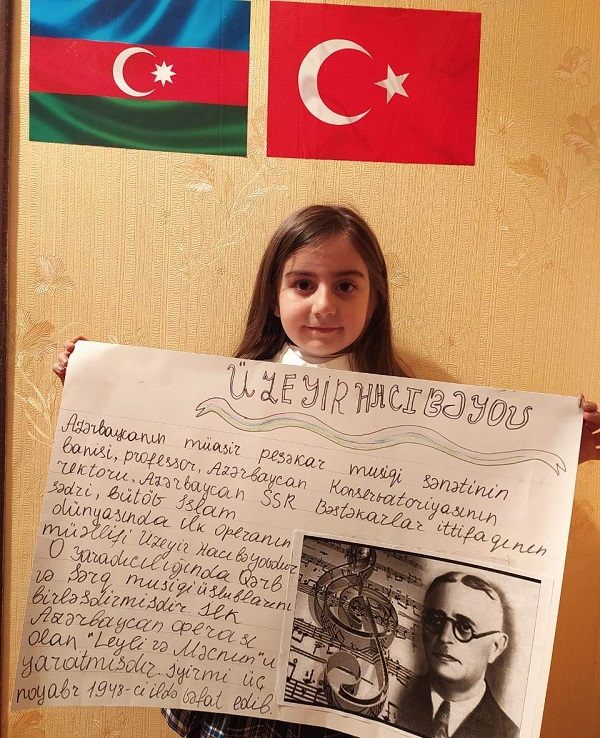 ÜZEYİR HACIBƏYOV
Azərbaycanın müasir peşəkar musiqi sənətinin
banisi, professor, Azərbaycan Konservatoriyasının
rektoru, Azərbaycan SSR Bəstəkarlar ittifaqının
sədri, bütöv İslam
dünyasında ilk operanın
müəllifi Üzeyir Hacıbəyovdur
O yaradıcılığında Qərb
və Şərq musiqi üslublarını
birləşdirmişdir. İlk
Azərbaycan operası
olan "Leyli və Məcnun"u
yaratmışdır. İyirmi üç
noyabr 1948-ci ildə vəfat edib.